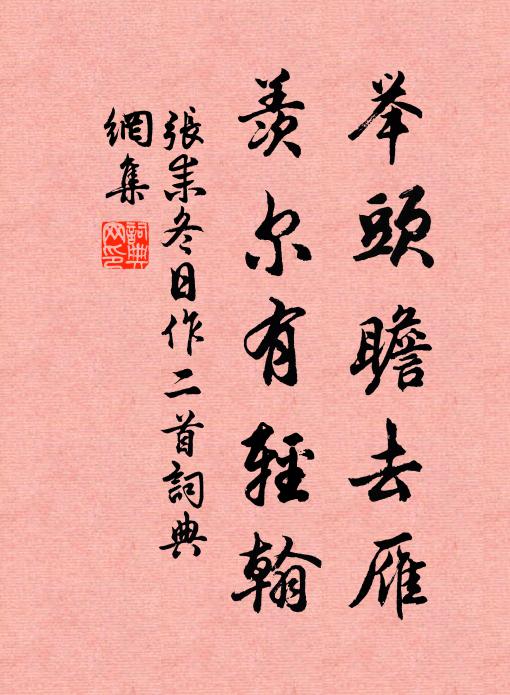 举頭瞻去雁
羡尔有輕翰
張耒冬日作二首詞典
網集
詞典
网印